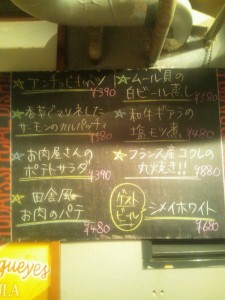 アンチョビキャベツ
¥390
香草でマリネした
サーモンのカルパッチョ
¥580
お肉屋さんの
ポテトサラダ
¥390
田舎風
お肉のパテ
¥480
ムール貝の
白ビール蒸し
¥580
和牛ギアラの
塩モツ煮
¥480
フランス産コクレの
丸焼き!!
¥880
ゲスト
ビール
シメイホワイト
¥680
gueyes
ULA